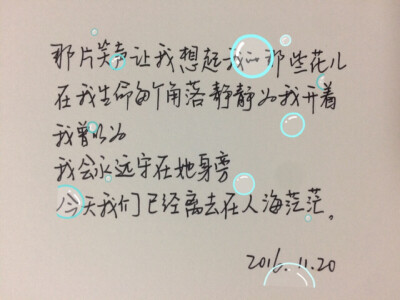 那片笑声让我想起我的那些花儿
在我生命每个角落静静为我开着
我曾以为
我会永远守在她身旁
今天我们已经离去在人海茫茫。
2016.11.20